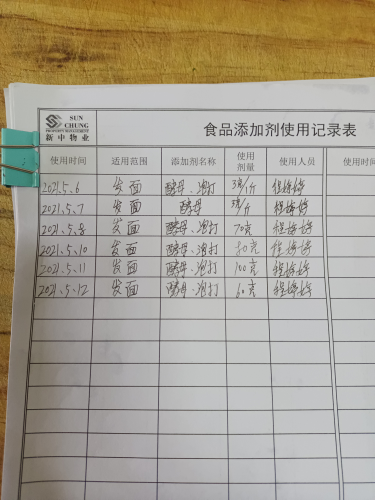 SUN
CHUNG
PROPERTY MANAGEMENT
新中物业
食品添加剂使用记录表
使用时间 适用范围 添加剂名称 使用剂量 使用人员 使用时间
2021.5.6 发面 酵母、泡打
2021.5.7 发面 酵母
2021.5.8 发面 酵母、泡打 70克
2021.5.10 发面 酵母、泡打 80克
2021.5.11 发面 酵母、泡打 100克
2021.5.12 发面 酵母、泡打 60克